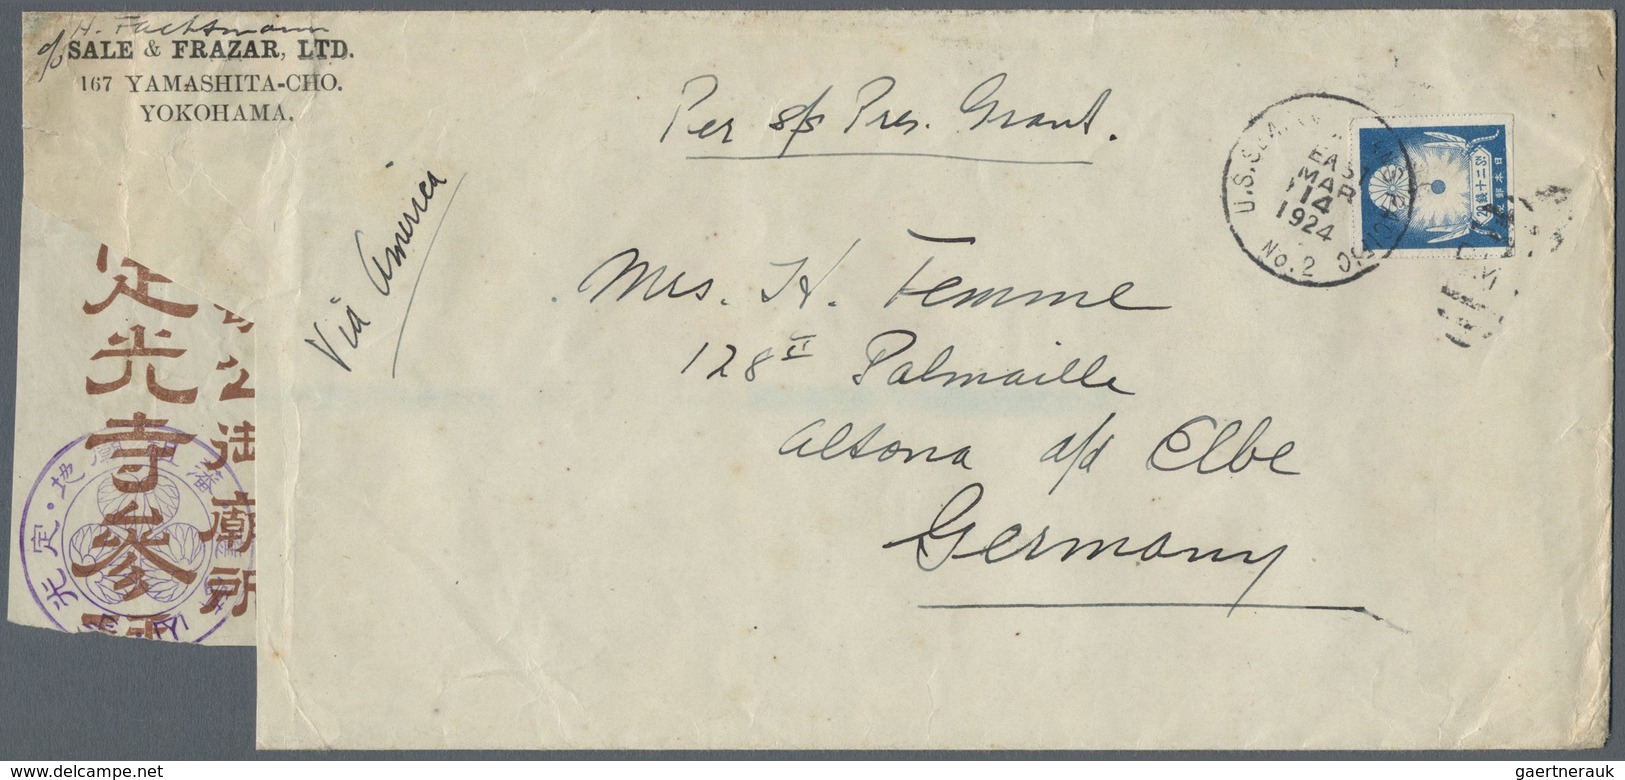 H. Fachtmann
c/o SALE & FRAZAR, LTD.
167 YAMASHITA-CHO.
YOKOHAMA.
Per s/s Pres. Grant.
Via America
U.S. SEA
EAST
MAR
14
1924
No. 2
日本郵便
20 銭十二 20
Mrs. H. Temme
128 II Palmaille
Altona a/d Elbe
Germany
定光寺參
公御廟所
定・地廟
gaertnerauk